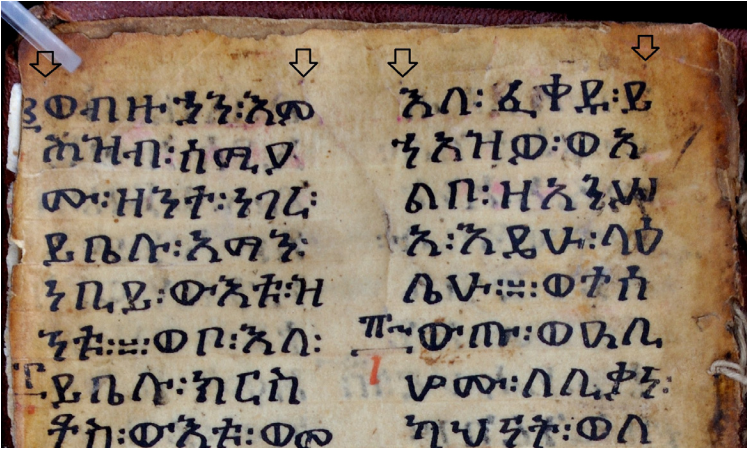 ወብዙኃን፡እም
ሕዝብ፡ሰሚዖ
ሙ፡ዘንተ፡ነገረ፡
ይቤሉ፡አማን፡
ነቢይ፡ውእቱ፡ዝ
ንቱ፡።፡ወቦ፡እለ፡
ይቤሉ፡ክርስ
ቶስ፡ውእቱ፡ወመ
እለ፡ፈቀዱ፡ይ
ኀአዝዎ፡ወአ
ልቦ፡ዘአንሥ
አ፡እዴሁ፡ላዕ
ሌሁ፡።፡ወተሰ
ውጡ፡ወዓሊ
ሆሙ፡ለሊቃነ፡
ካህናት፡ወለ